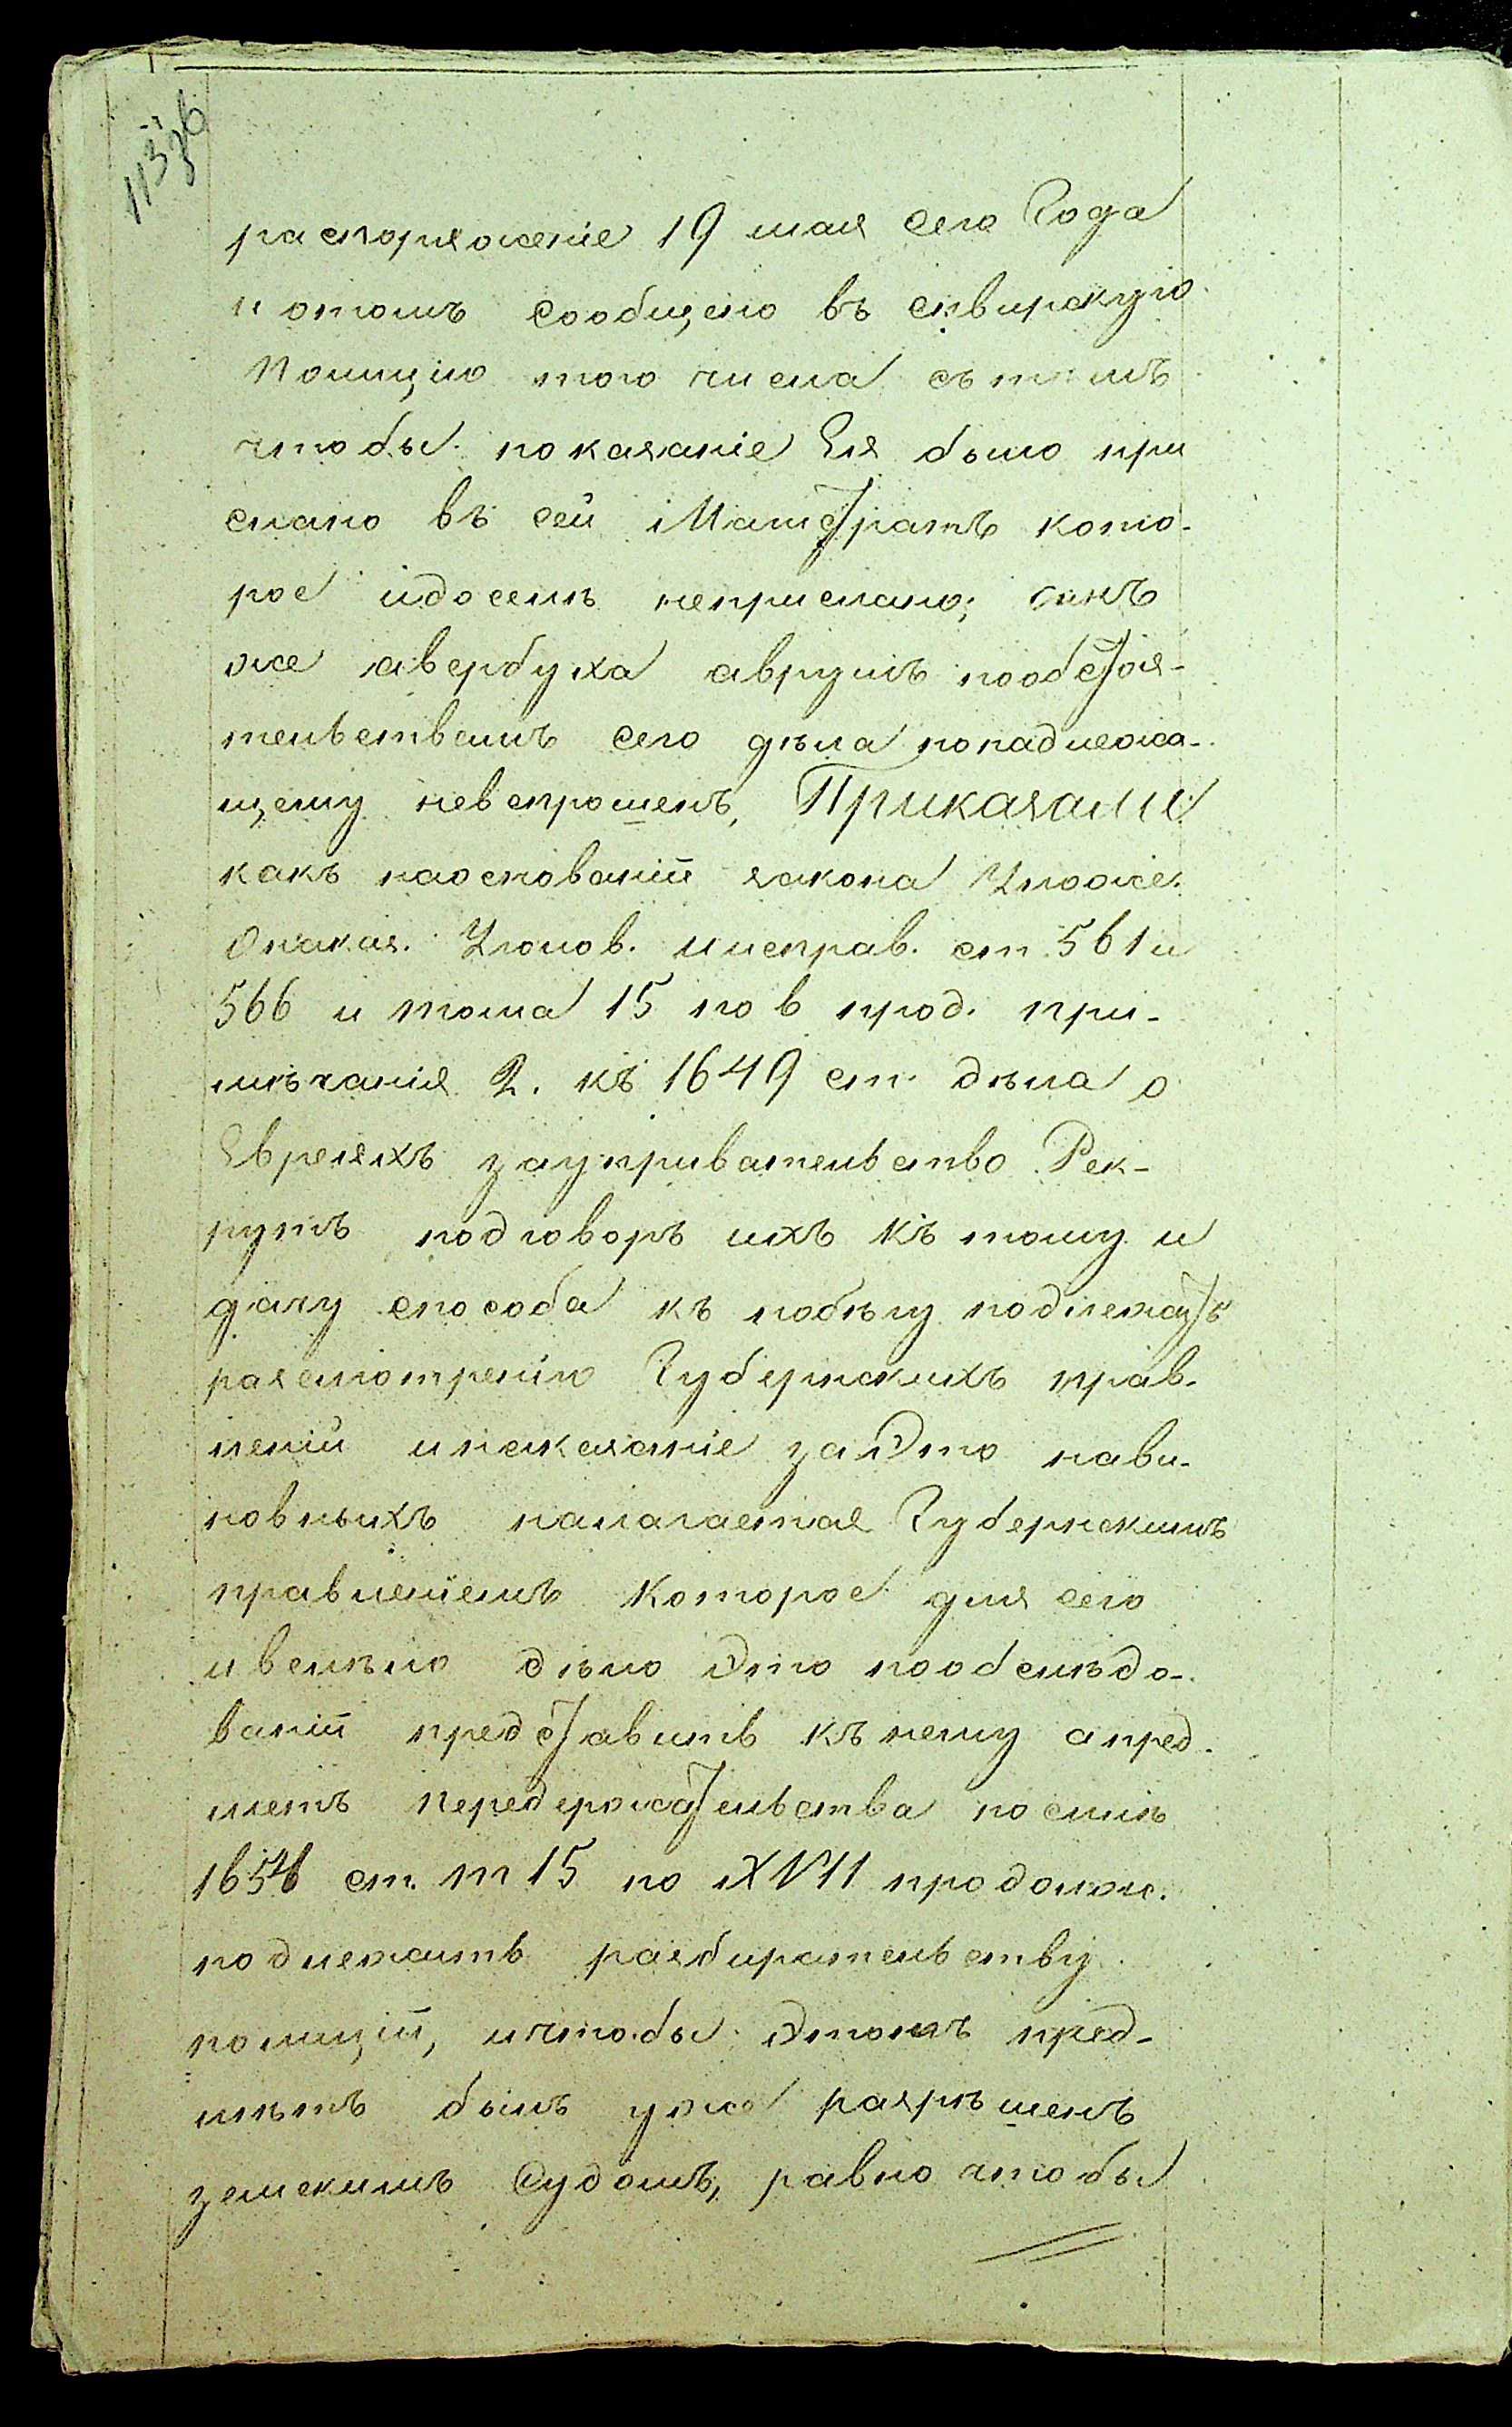 распоряженіе 19 мая сего Года
и отомъ сообщено въ сквирскую
Полицію того числа съ тѣмъ
чтобы показаніе Ея было при
слано въ сей Магистратъ кото-
рое идосель неприслано; такъ
же авербуха аврумъ пообстоя-
тельствамъ сего дѣла понадлежа-
щему невспрошенъ, Приказали
какъ наоснованіи закона Уложе.
Онаказ. Уголов. иисправ. ст. 561 и
566 и тома 15 по 6 прод. при-
мѣчанія 2. къ 1649 ст. дѣла о
Евреяхъ заукривательство Рек-
рутъ подговоръ ихъ къ тому и
дачу способа къ побѣгу подлежатъ
разсмотренію Губернскихъ прав-
леній инаказаніе заэто нави-
новныхъ налагается Губернскимъ
правленіемъ которое для сего
ивелѣло дѣло это пообслѣдо-
ваніи представить къ нему а пред-
метъ передержательства посилѣ
1654 ст. т 15 по XVII продолж.
подлежатъ разбирательству
полиціи, ичтобы этотъ пред-
мѣтъ былъ уже разрѣшенъ
земскимъ Судомъ, равно чтобы